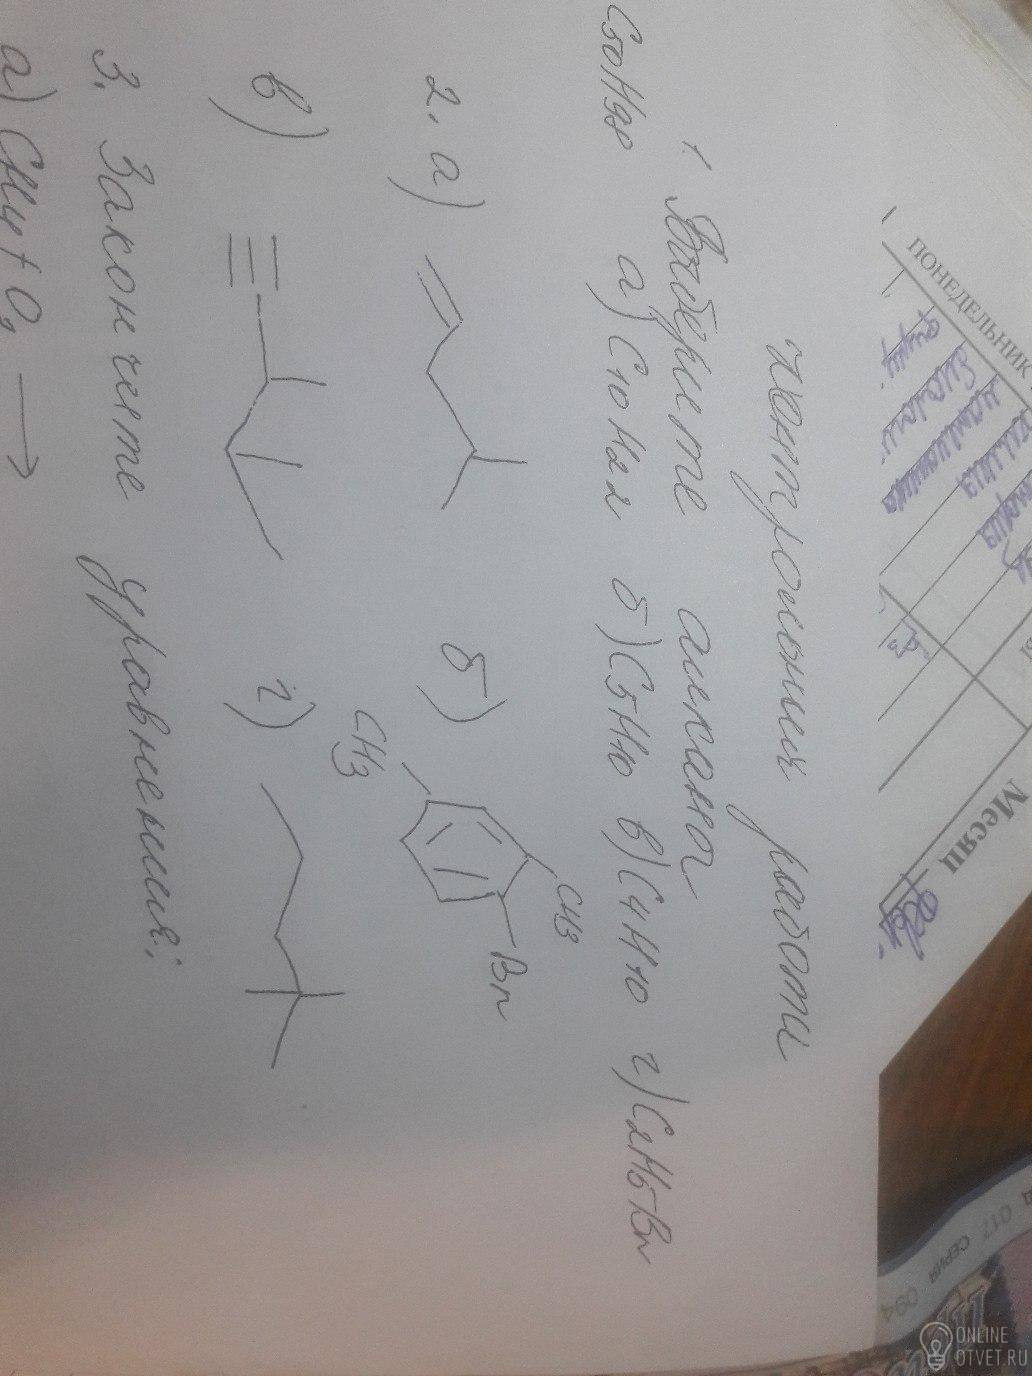 контрольная работа
1. Выберите алкана
C50H98 а) C10H22 б) C5H10 в) C4H10 г) C2H5Br
2. а) б) CH3 CH3 Br
в) г)
3. Закончите уравнения:
а) CH4 + O2 →
ПОНЕДЕЛЬНИК
Месяц
017 СЕРИЯ 094
ONLINE
OTVET.RU